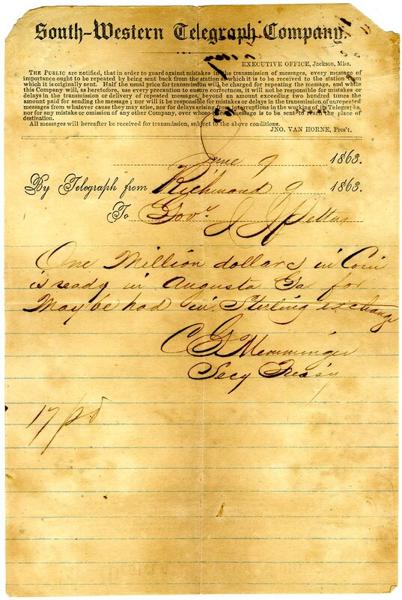 South-Western Telegraph Company.
EXECUTIVE OFFICE, Jackson, Miss.
THE PUBLIC are notified, that in order to guard against mistakes in the transmission of messages, every message of
importance ought to be repeated by being sent back from the station at which it is to be received to the station from
which it is originally sent. Half the usual price for transmission will be charged for repeating the message, and while
this Company will, as heretofore, use every precaution to ensure correctness, it will not be responsible for mistakes or
delays in the transmission or delivery of repeated messages, beyond an amount exceeding two hundred times the
amount paid for sending the message; nor will it be responsible for mistakes or delays in the transmission of unrepeated
messages from whatever cause they may arise, nor for delays arising from interruptions in the working of its Telegraphs,
nor for any mistake or omission of any other Company, over whose lines a message is to be sent to reach the place of
destination.
All messages will hereafter be received for transmission, subject to the above conditions.
JNO. VAN HORNE, Pres't.
June 9 1863.
By Telegraph from Richmond 9 1863.
To Gov. J J Pettus
One Million dollars in Coin
is ready in Augusta Ga for
May be had in Sterling exchange
C G Memminger
Secy Treasy
17/pd